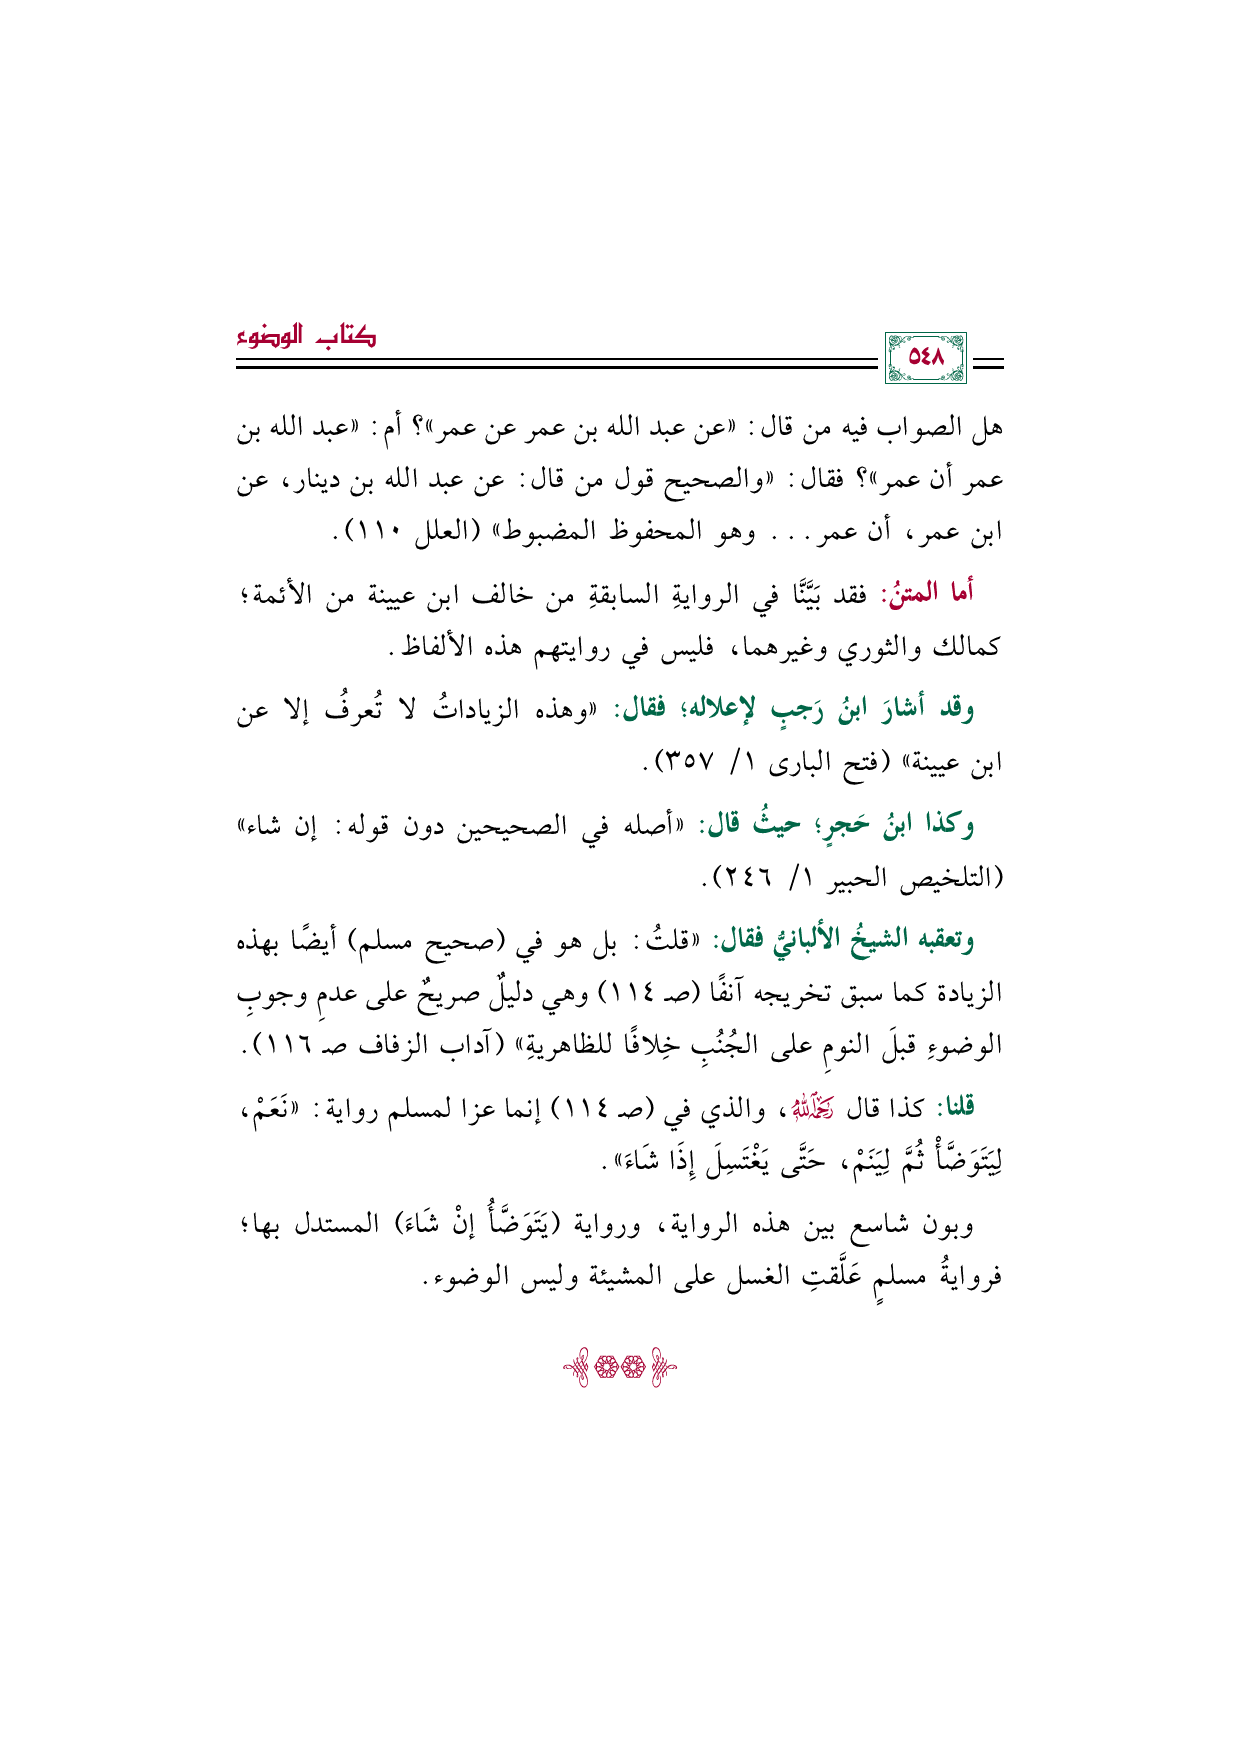 كتاب الوضوء
٥٤٨
هل الصواب فيه من قال: «عن عبد الله بن عمر عن عمر»؟ أم: «عبد الله بن
عمر أن عمر»؟ فقال: «والصحيح قول من قال: عن عبد الله بن دينار، عن
ابن عمر، أن عمر... وهو المحفوظ المضبوط» (العلل ١١٠).
أما المتنُ: فقد بَيَّنَّا في الروايةِ السابقةِ من خالف ابن عيينة من الأئمة؛
كمالك والثوري وغيرهما، فليس في روايتهم هذه الألفاظ.
وقد أشارَ ابنُ رَجبٍ لإعلاله؛ فقال: «وهذه الزياداتُ لا تُعرفُ إلا عن
ابن عيينة» (فتح البارى ١/ ٣٥٧).
وكذا ابنُ حَجرٍ؛ حيثُ قال: «أصله في الصحيحين دون قوله: إن شاء»
(التلخيص الحبير ١/ ٢٤٦).
وتعقبه الشيخُ الألبانيُّ فقال: «قلتُ: بل هو في (صحيح مسلم) أيضًا بهذه
الزيادة كما سبق تخريجه آنفًا (صـ ١١٤) وهي دليلٌ صريحٌ على عدمِ وجوبِ
الوضوءِ قبلَ النومِ على الجُنُبِ خِلافًا للظاهريةِ» (آداب الزفاف صـ ١١٦).
قلنا: كذا قال رحمه الله، والذي في (صـ ١١٤) إنما عزا لمسلم رواية: «نَعَمْ،
لِيَتَوَضَّأْ ثُمَّ لِيَنَمْ، حَتَّى يَغْتَسِلَ إِذَا شَاءَ».
وبون شاسع بين هذه الرواية، ورواية (يَتَوَضَّأُ إنْ شَاءَ) المستدل بها؛
فروايةُ مسلمٍ عَلَّقتِ الغسل على المشيئة وليس الوضوء.